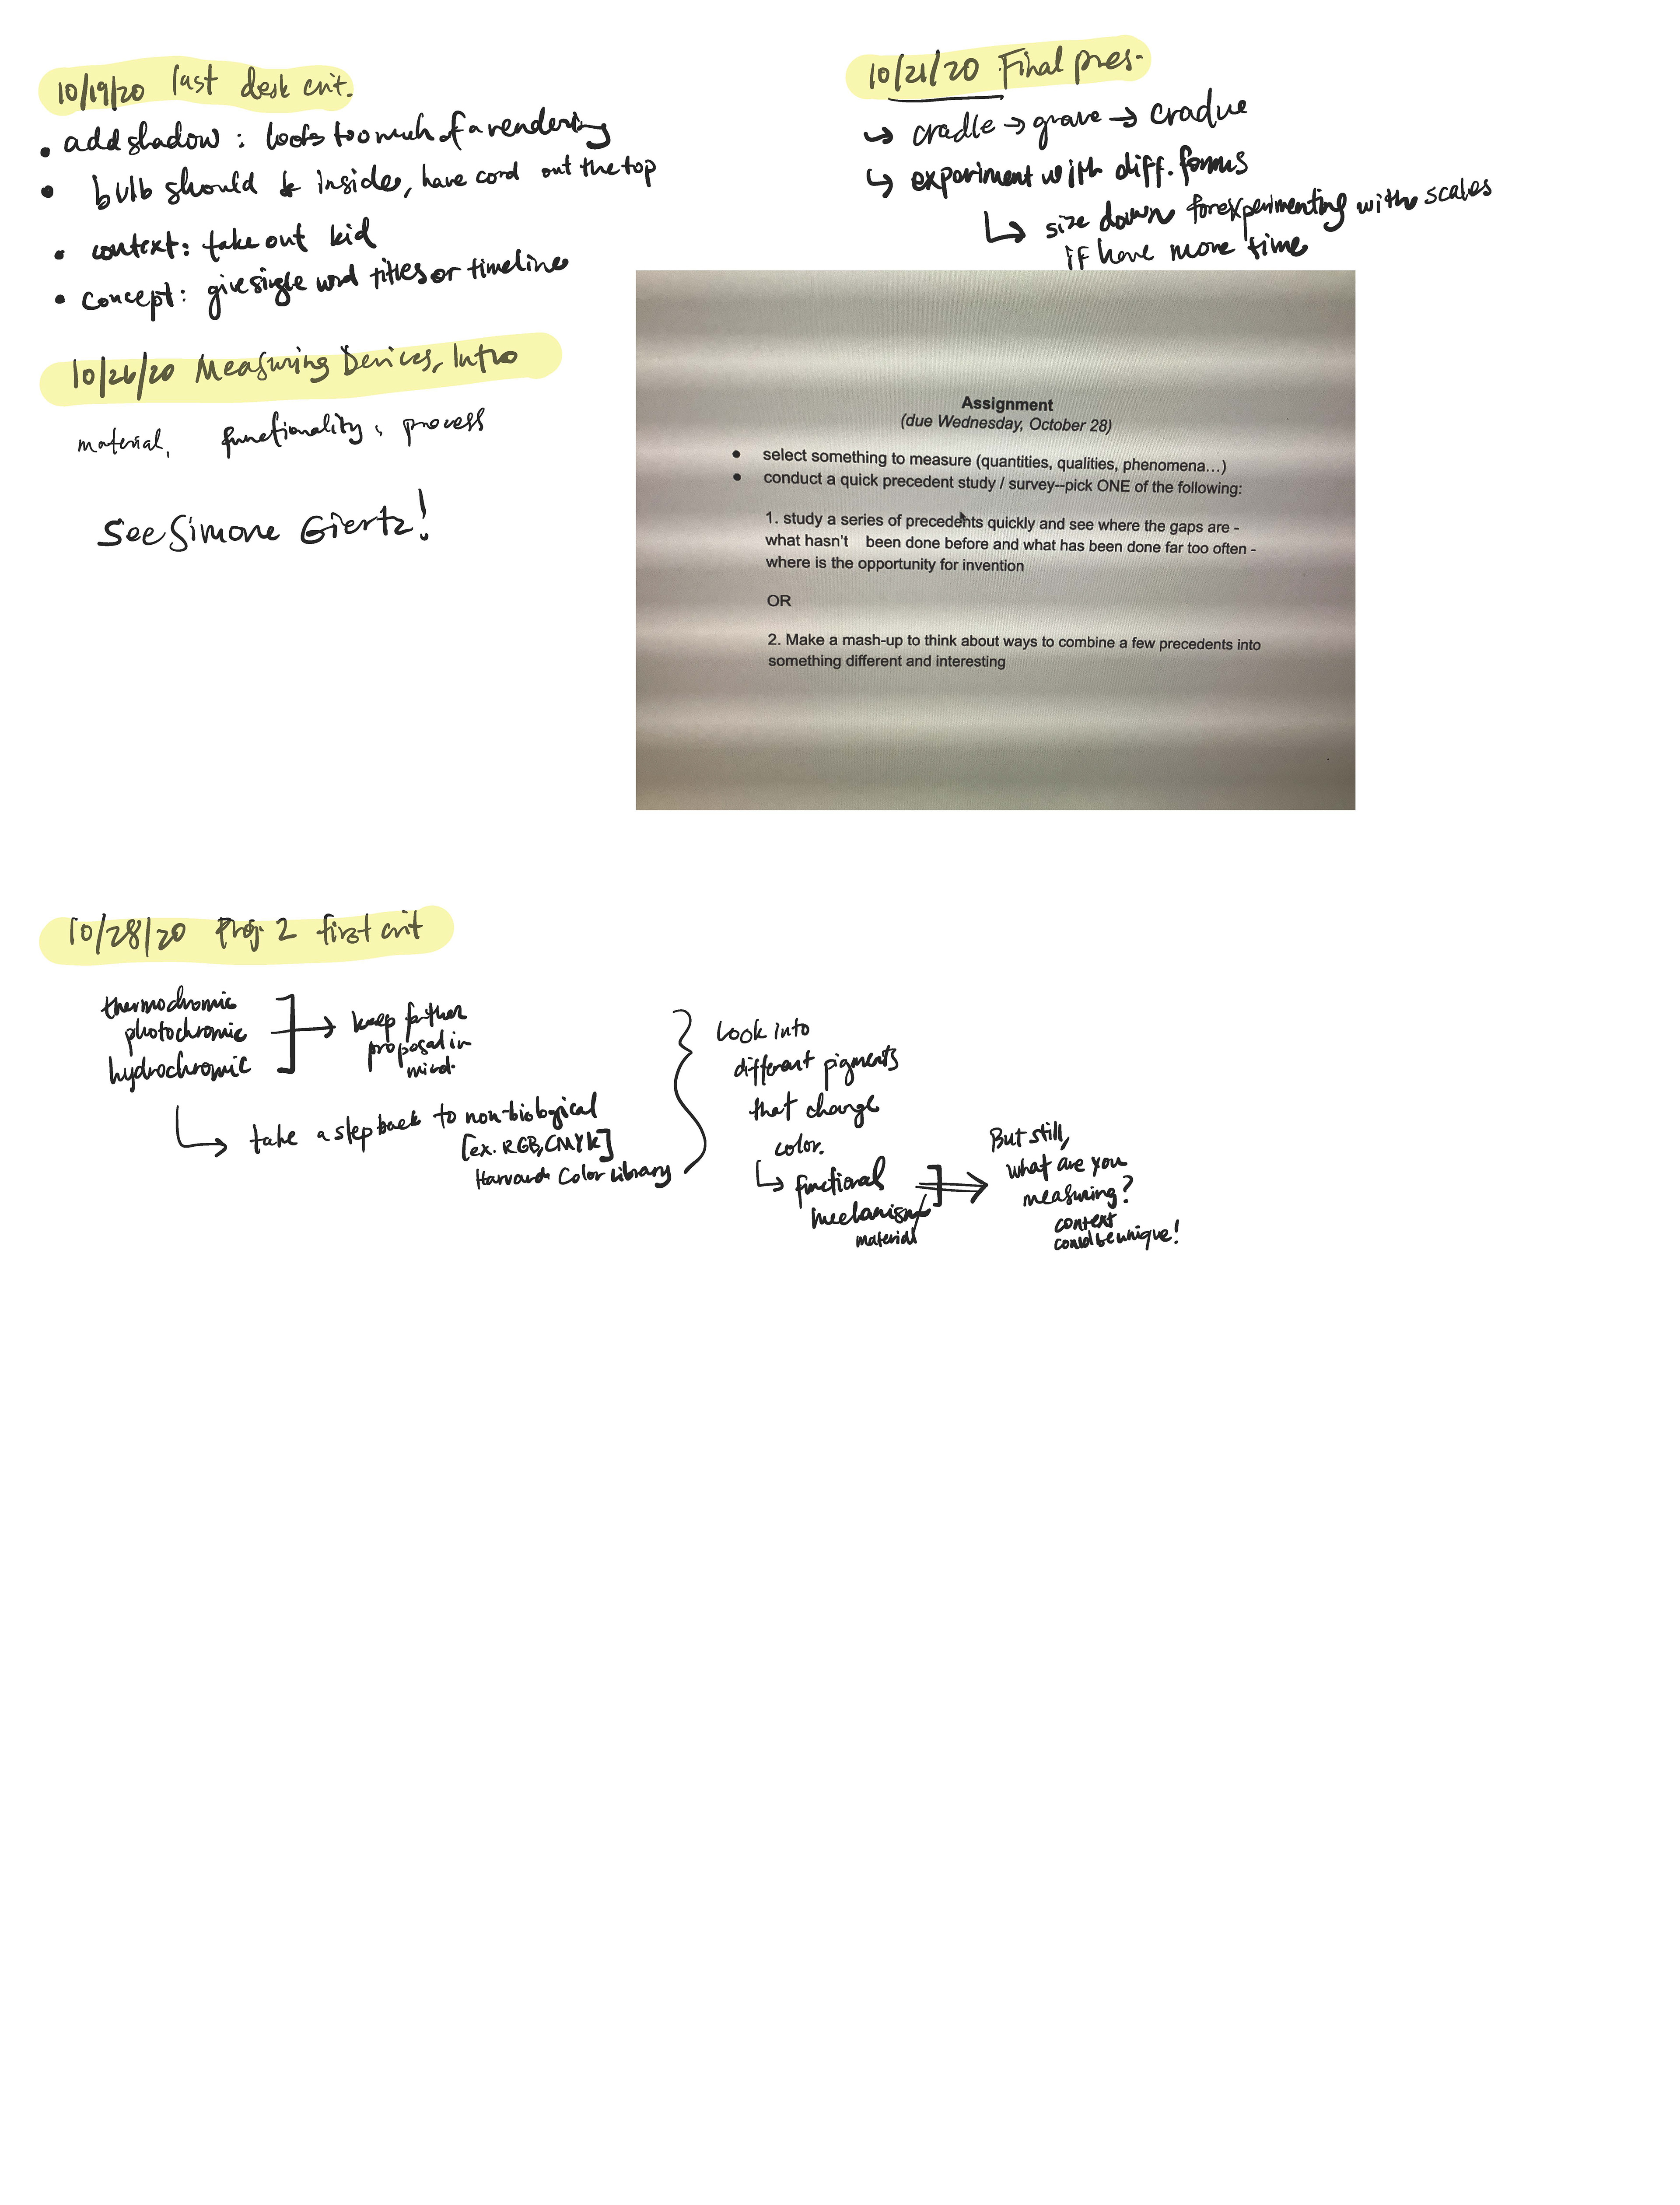 10/19/20 last desk crit.
• add shadow : looks too much of a rendering
• bulb should be inside, have cord out the top
• context: take out kid
• concept: give single word titles or timeline
10/21/20 Final pres.
↳ cradle → grave → cradue
↳ experiment with diff. forms
↳ size down for experimenting with scales
if have more time
10/26/20 Measuring Devices, Intro
material, functionality, process
See Simone Giertz!
Assignment
(due Wednesday, October 28)
• select something to measure (quantities, qualities, phenomena...)
• conduct a quick precedent study / survey--pick ONE of the following:
1. study a series of precedents quickly and see where the gaps are -
what hasn't been done before and what has been done far too often -
where is the opportunity for invention
OR
2. Make a mash-up to think about ways to combine a few precedents into
something different and interesting
10/28/20 Proj. 2 first crit
thermochromic
photochromic
hydrochromic
→ keep further
proposal in
mind.
↳ take a step back to non-biological
[ex. RGB, CMYK]
Harvard Color Library
Look into
different pigments
that change
color.
↳ functional
mechanism
material
But still,
what are you
measuring?
context
could be unique!